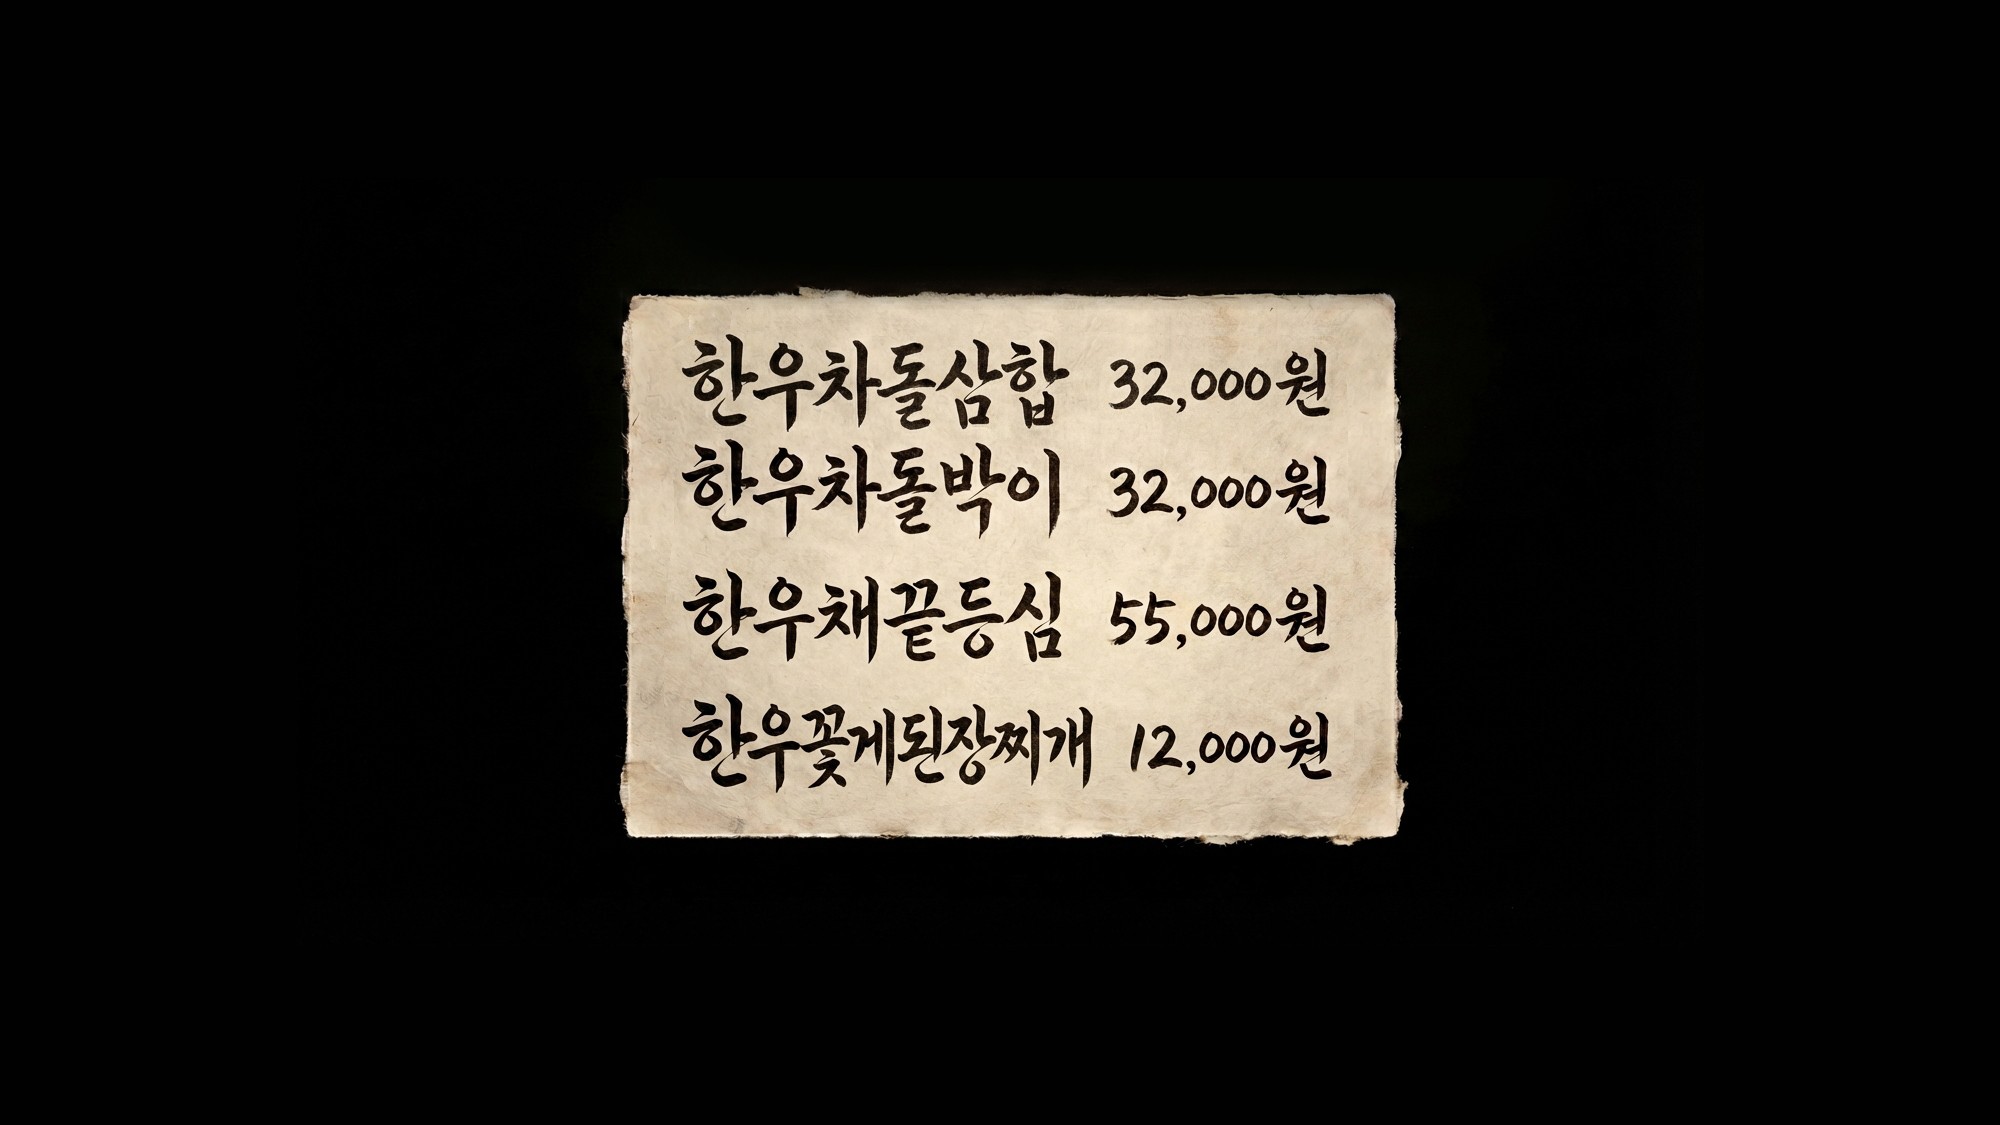 한우차돌삼합 32,000원
한우차돌박이 32,000원
한우채끝등심 55,000원
한우꽃게된장찌개 12,000원